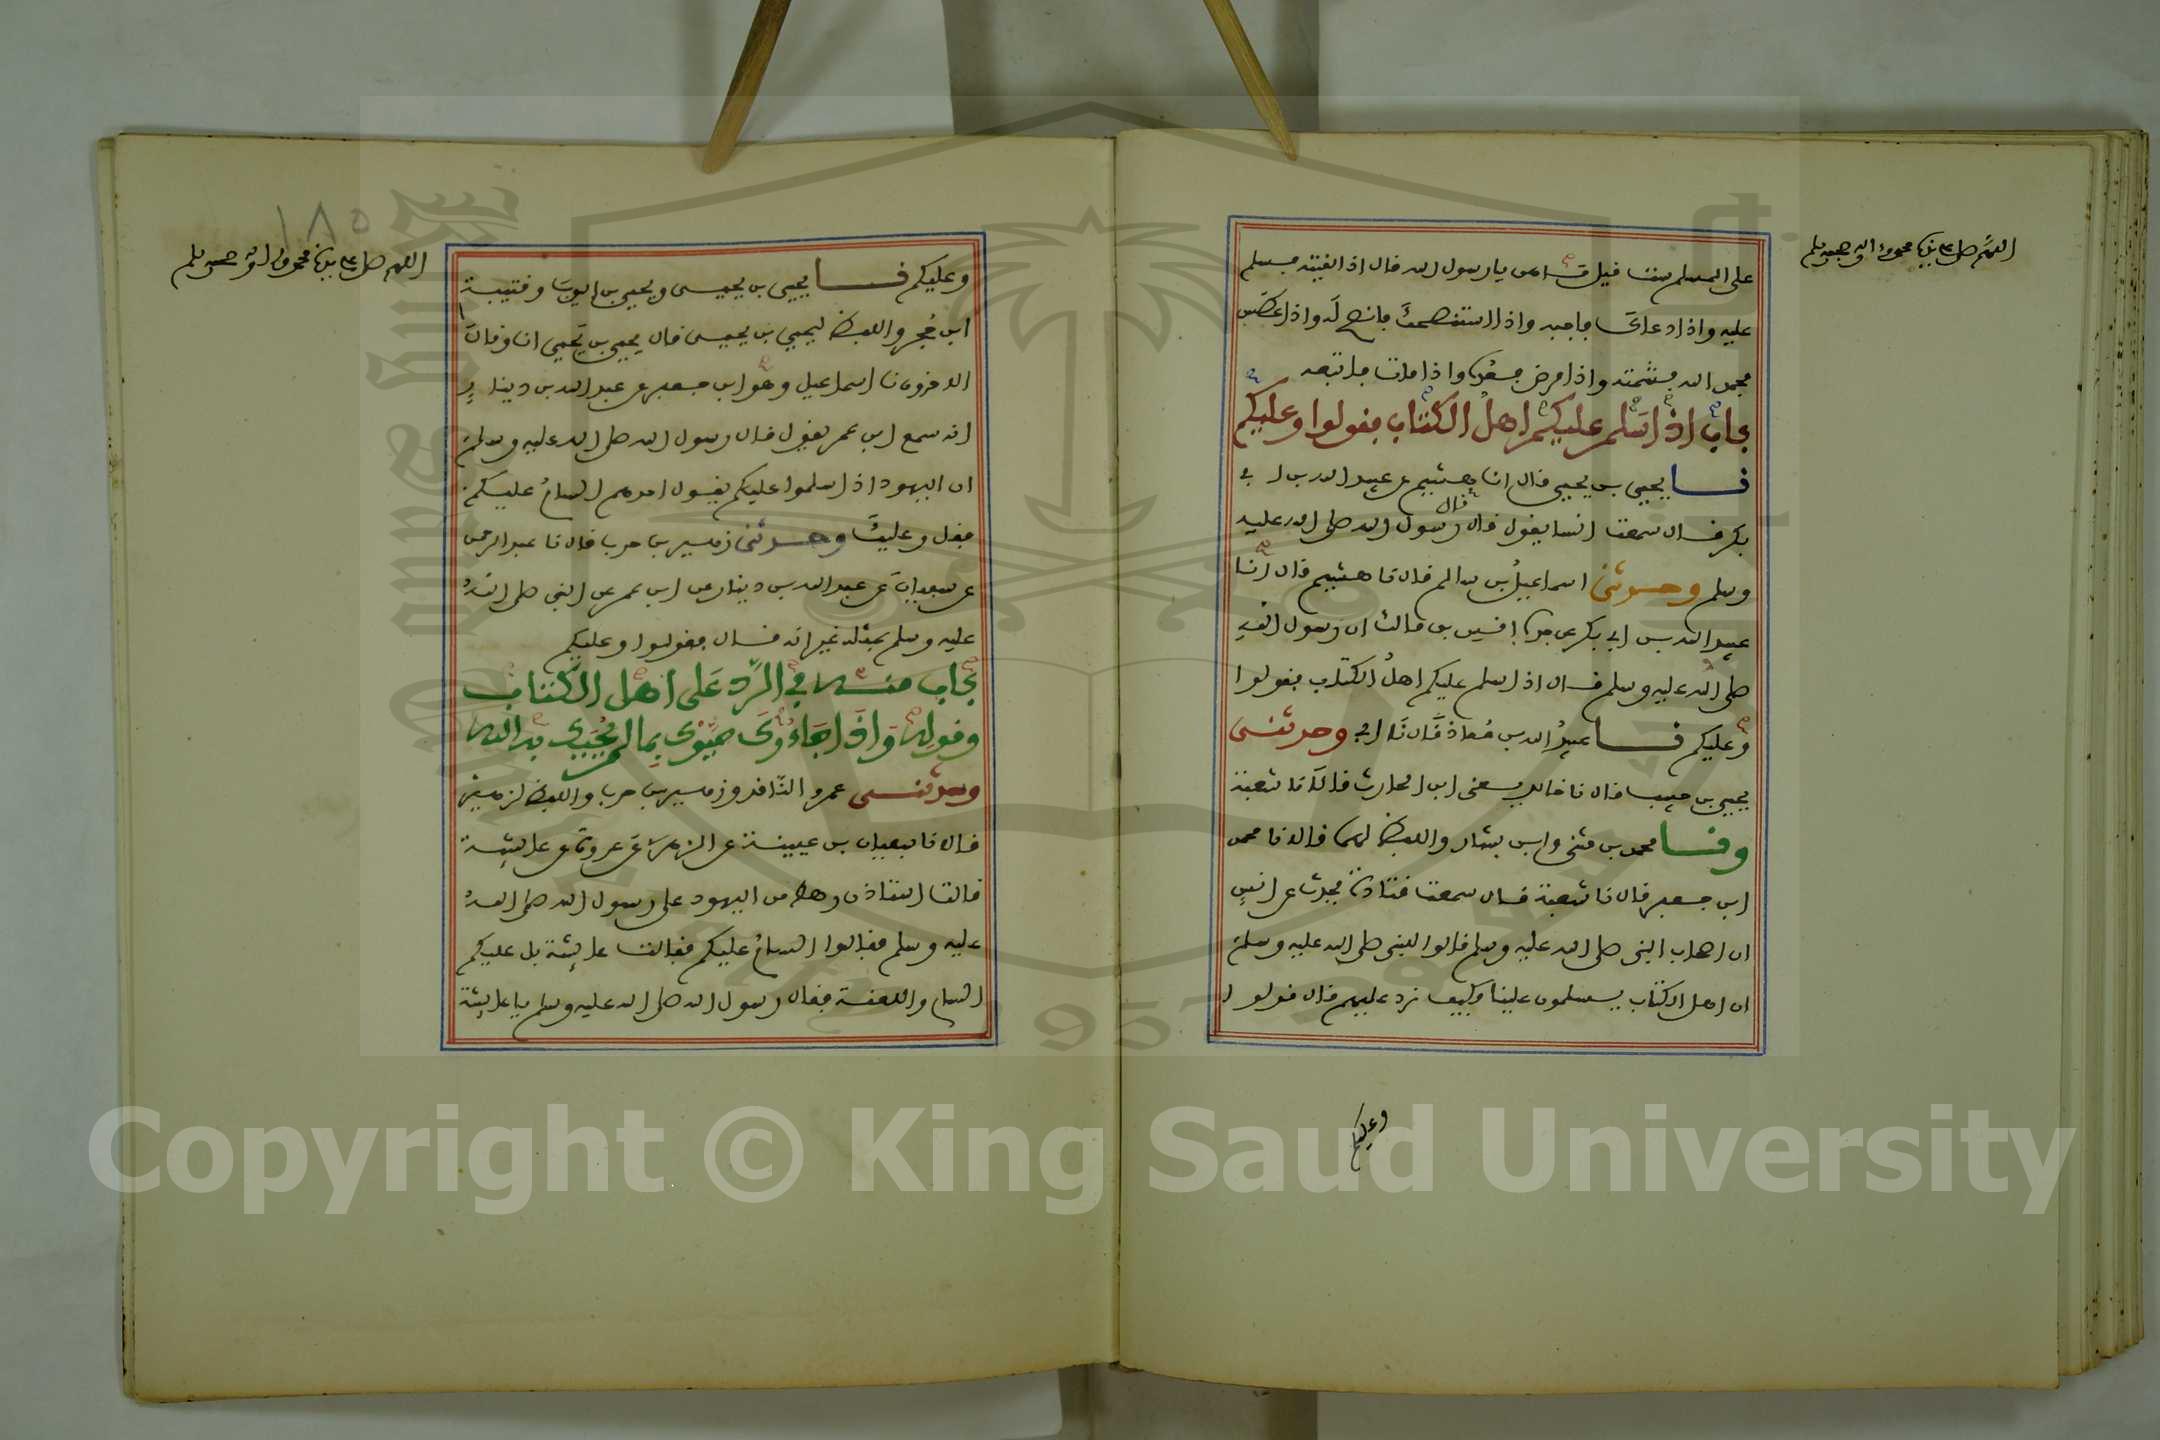 اللهم صل على سيدنا محمد وآله وصحبه وسلم
على المسلم ست قيل ما هن يا رسول الله قال اذا لقيته فسلم
عليه واذا دعاك فاجبه واذا استنصحك فانصح له واذا عطس
فحمد الله فشمته واذا مرض فعده واذا مات فاتبعه
باب اذا سلم عليكم اهل الكتاب فقولوا وعليكم
نا يحيى بن يحيى قال انا هشيم عن عبيد الله بن ابي
بكر قال سمعت انسا يقول قال قال رسول الله صلى الله عليه
وسلم وحدثني اسماعيل بن سالم قال نا هشيم قال انا
عبيد الله بن ابي بكر عن جده انس بن مالك ان رسول الله
صلى الله عليه وسلم قال اذا سلم عليكم اهل الكتاب فقولوا
وعليكم نا عبيد الله بن معاذ قال نا ابي وحدثني
يحيى بن حبيب قال نا خالد يعني ابن الحارث قالا نا شعبة
ونا محمد بن مثنى وابن بشار واللفظ لهما قالا نا محمد
ابن جعفر قال نا شعبة قال سمعت قتادة يحدث عن انس
ان اصحاب النبي صلى الله عليه وسلم قالوا للنبي صلى الله عليه وسلم
ان اهل الكتاب يسلمون علينا فكيف نرد عليهم قال قولوا
وعليكم
١٨٥
اللهم صل على سيدنا محمد وآله وصحبه وسلم
وعليكم نا يحيى بن يحيى ويحيى بن ايوب وقتيبة
ابن حجر واللفظ ليحيى بن يحيى قال يحيى بن يحيى انا وقال
الاخرون نا اسماعيل وهو ابن جعفر عن عبد الله بن دينار
انه سمع ابن عمر يقول قال رسول الله صلى الله عليه وسلم
ان اليهود اذا سلموا عليكم يقول احدهم السام عليكم
فقل وعليك وحدثني زهير بن حرب قال نا عبد الرحمن
عن سفيان عن عبد الله بن دينار عن ابن عمر عن النبي صلى الله
عليه وسلم بمثله غير انه قال فقولوا وعليكم
باب منه في الرد على اهل الكتاب
وقوله واذا جاءوك حيوك بما لم يحيك به الله
وحدثني عمرو الناقد وزهير بن حرب واللفظ لزهير
قالا نا سفيان بن عيينة عن الزهري عن عروة عن عائشة
قالت استاذن رهط من اليهود على رسول الله صلى الله
عليه وسلم فقالوا السام عليكم فقالت عائشة بل عليكم
السام واللعنة فقال رسول الله صلى الله عليه وسلم يا عائشة
Copyright © King Saud University